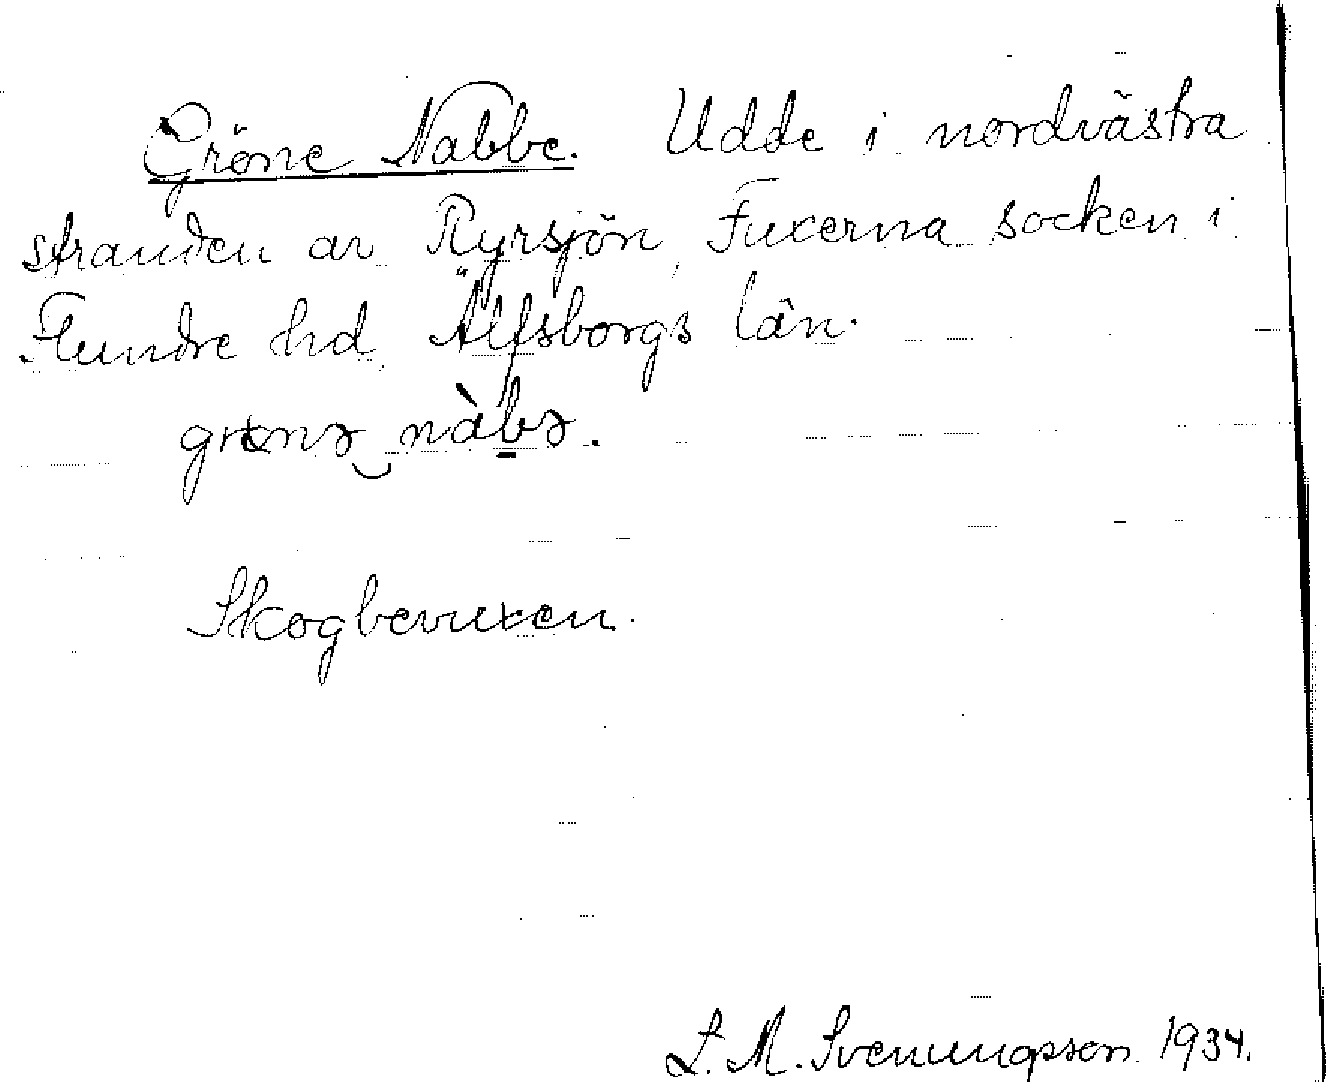 Gröne Nabbe. Udde i nordvästra
stranden av Ryrsjön, Fuxerna socken i
Flundre hd, Älfsborgs län.
nàbə.
Skogbevuxen.
L. M. Svenungsson 1934.